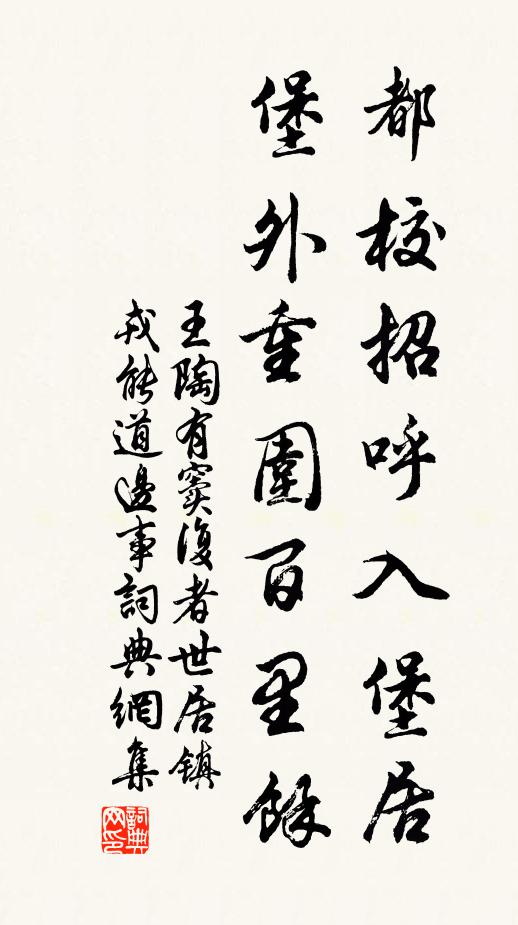 都校招呼入堡居
堡外重圍百里餘
王陶有竇復者世居鎮
戎能道邊事詞典網集
詞典网印